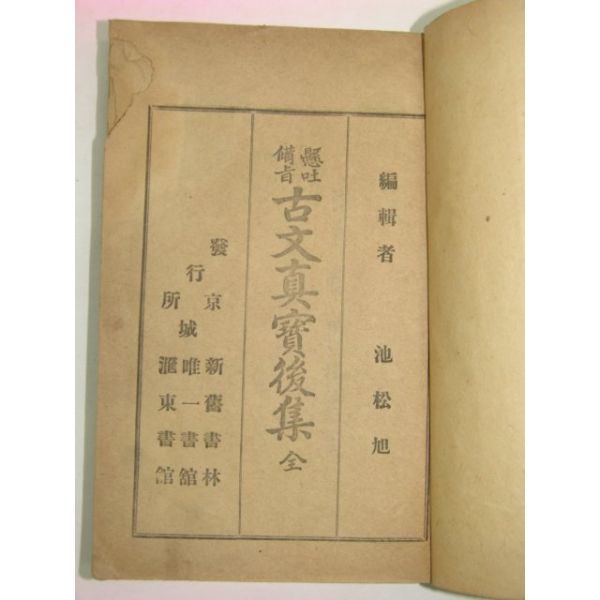 編輯者 池松旭
懸吐
備旨
古文真寳後集 全
發行所
京城
新舊書林
唯一書舘
滙東書舘